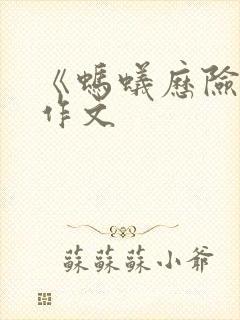 《螞蟻歷險
作文
蘇蘇蘇小爺